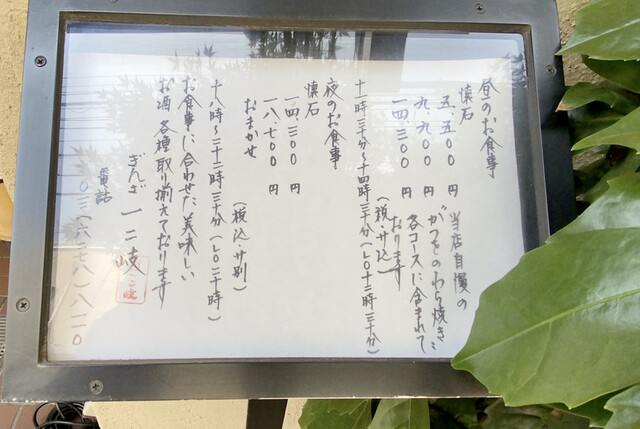 昼のお食事
懐石
五.五〇〇 円
九.九〇〇 円
一四.三〇〇 円
当店自慢の
かつをのわら焼き
各コースに含まれて
おります
(税・サ込)
十一時三十分〜十四時三十分(LO十三時三十分)
夜のお食事
懐石
一四.三〇〇 円
一八.七〇〇 円
おまかせ
(税込・サ別)
十八時〜二十二時三十分(LO二十時)
お食事に合わせた美味しい
お酒 各種取り揃えております
ぎんざ 一二岐
電話 〇三(六二七八)八一一〇